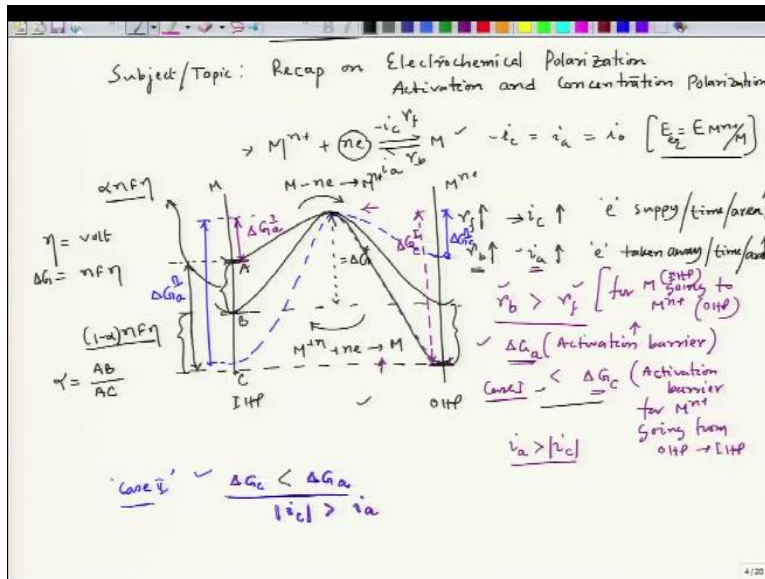 Subject/Topic: Recap on Electrochemical Polarization
Activation and Concentration Polarization
→ Mⁿ⁺ + ne ⇌ M ✓ -i_c = i_a = i_0 [E_eq = E Mⁿ⁺/M]
-i_c r_f
i_a r_b
M - ne → Mⁿ⁺
αnFη
M
Mⁿ⁺
η = volt
ΔG = nFη
ΔG_a^I
ΔG_a^II
ΔG_c^I
ΔG_c^II
= ΔG
A
B
C
(1-α)nFη
α = AB/AC
M⁺ⁿ + ne → M
IHP
OHP
r_f ↑ → i_c ↑ 'e' suppy/time/area
r_b ↑ - i_a ↑ 'e' taken away/time/area
r_b > r_f [for M (IHP) going to
Mⁿ⁺ (OHP)
✓ ΔG_a (Activation barrier)
Case I < ΔG_c (Activation
barrier
for Mⁿ⁺
going from
OHP → IHP
i_a > |i_c|
'Case II' ✓ ΔG_c < ΔG_a
|i_c| > i_a
4/20